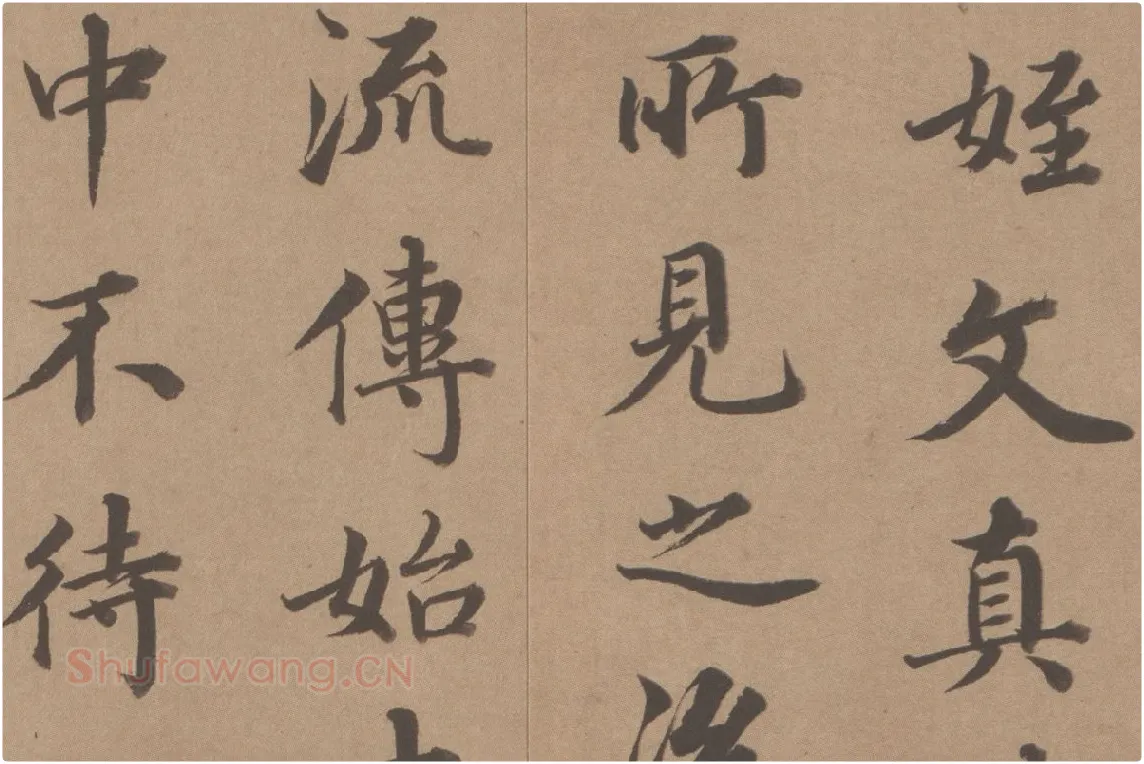 姪文真
所見之
流傳始
中不待
Shufawang.CN